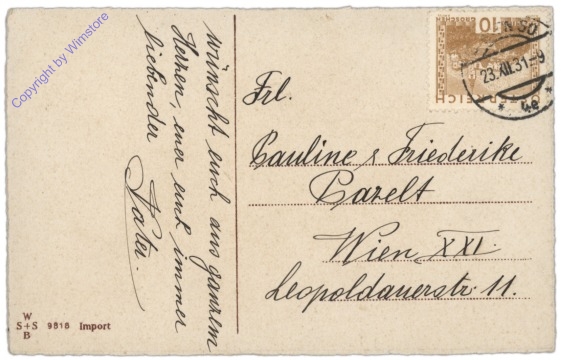 wünscht euch aus ganzem
Herzen, euer euch immer
liebender
Vater.
Frl.
Pauline & Friederike
Pazelt
Wien XXI.
Leopoldauerstr. 11.
10
ÖSTERREICH
23.XII.31-9
* 4e *
W
S+S 9818 Import
B
Copyright by Wimstore